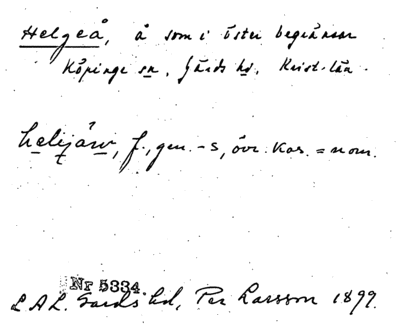 Helgeå, å som i öster begränsar
Köpinge sn, Gärds hd, Krist. län.
helijåw, f., gen. -s, övr. kas. = nom.
Nr 5334.
L.A.L. Gärds hd, Per Larsson 1899.